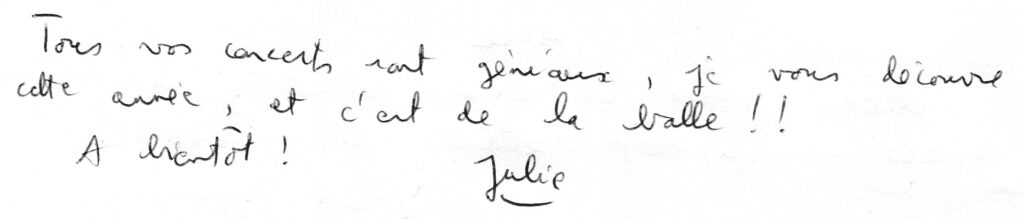 Tous vos concerts sont géniaux, je vous découvre
cette année, et c'est de la balle !!
A bientôt !
Julie